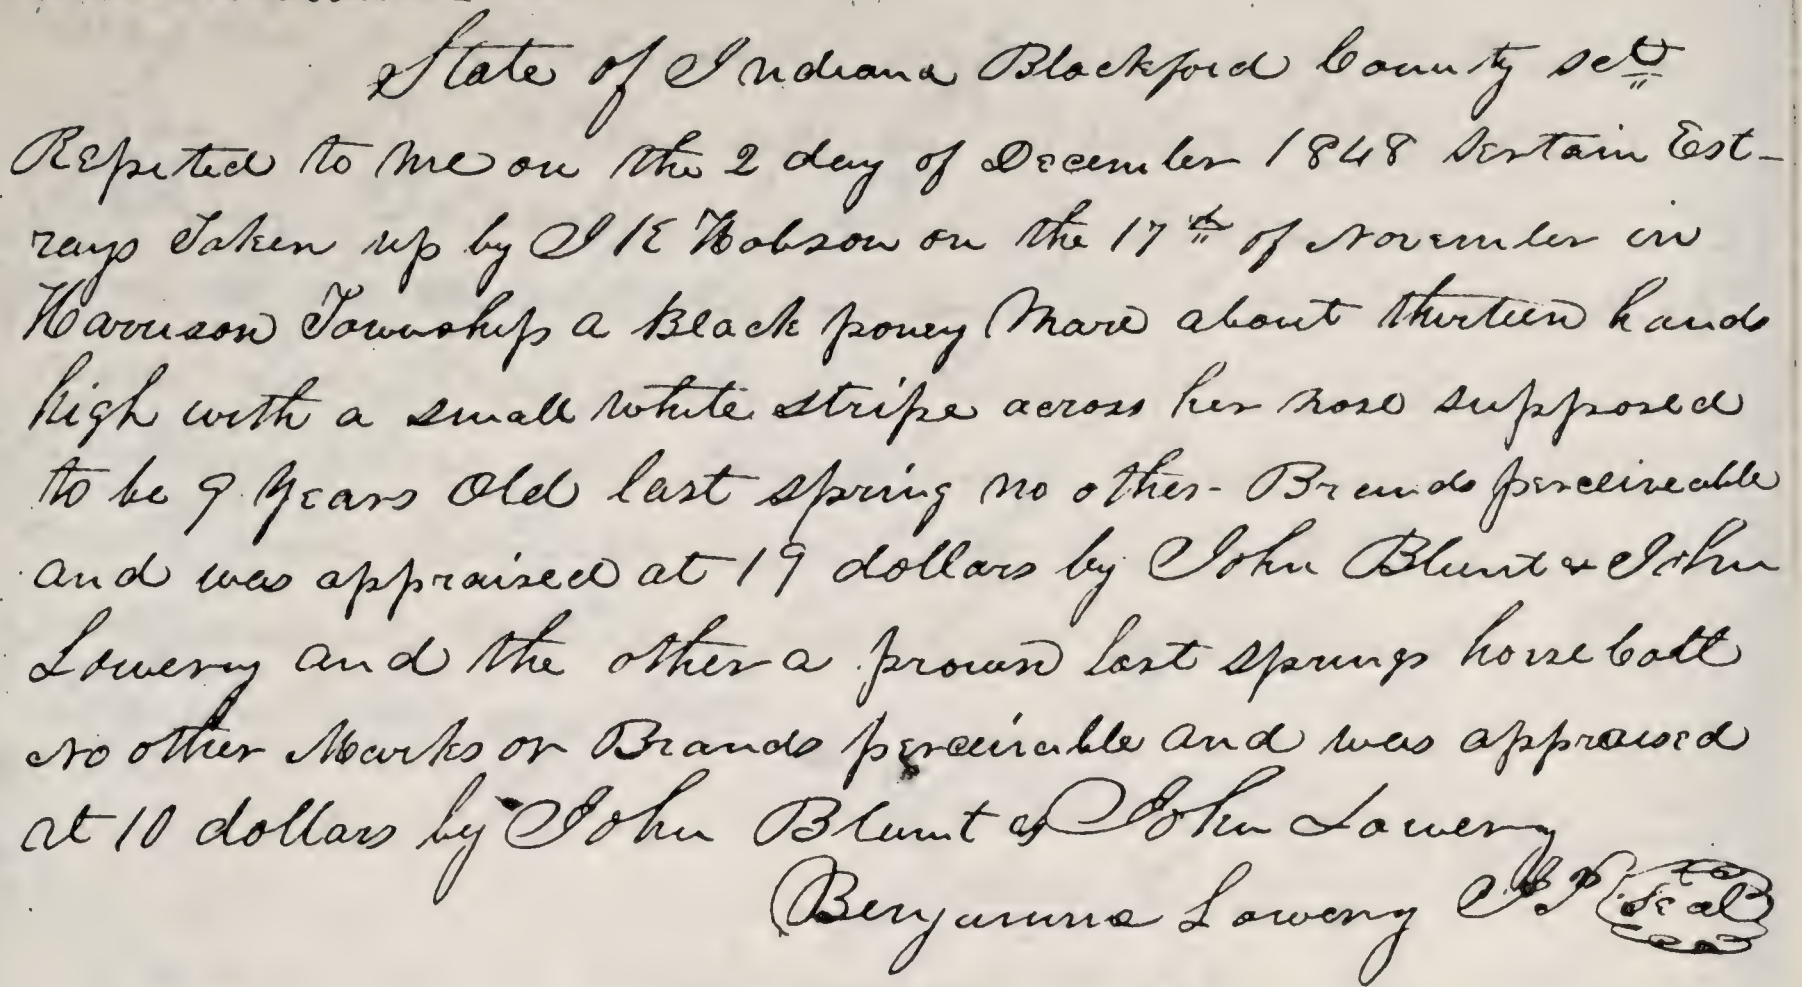 State of Indiana Blackford County sct
Repeted to me on the 2 day of December 1848 Sertain Est-
rays Taken up by I K Hobson on the 17th of November in
Harrison Township a Black poney Mare about thirteen hands
high with a small white stripe across her nose supposed
to be 9 Years Old last spring no other Brands perceiveable
and was appraised at 19 dollars by John Blunt & John
Lowery and the other a prown last springs horse Colt
No other Marks or Brands perceivable and was appraised
at 10 dollars by John Blunt & John Lowery
Benjamine Lowery JP Seal